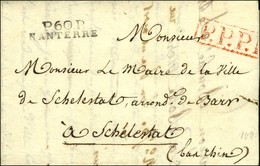 P60P
NANTERRE
P.P.P.P.
Monsieur
Monsieur Le Maire de la Ville
de Schelestat arrond. de Barr
à Schelestat
(bas rhin)